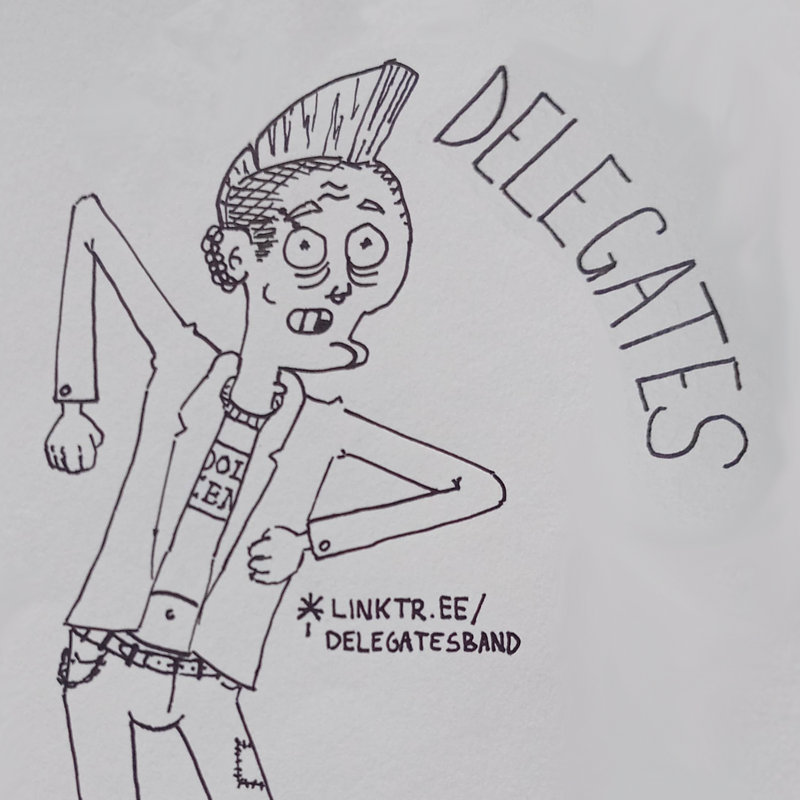 DELEGATES
*LINKTR.EE/
DELEGATESBAND